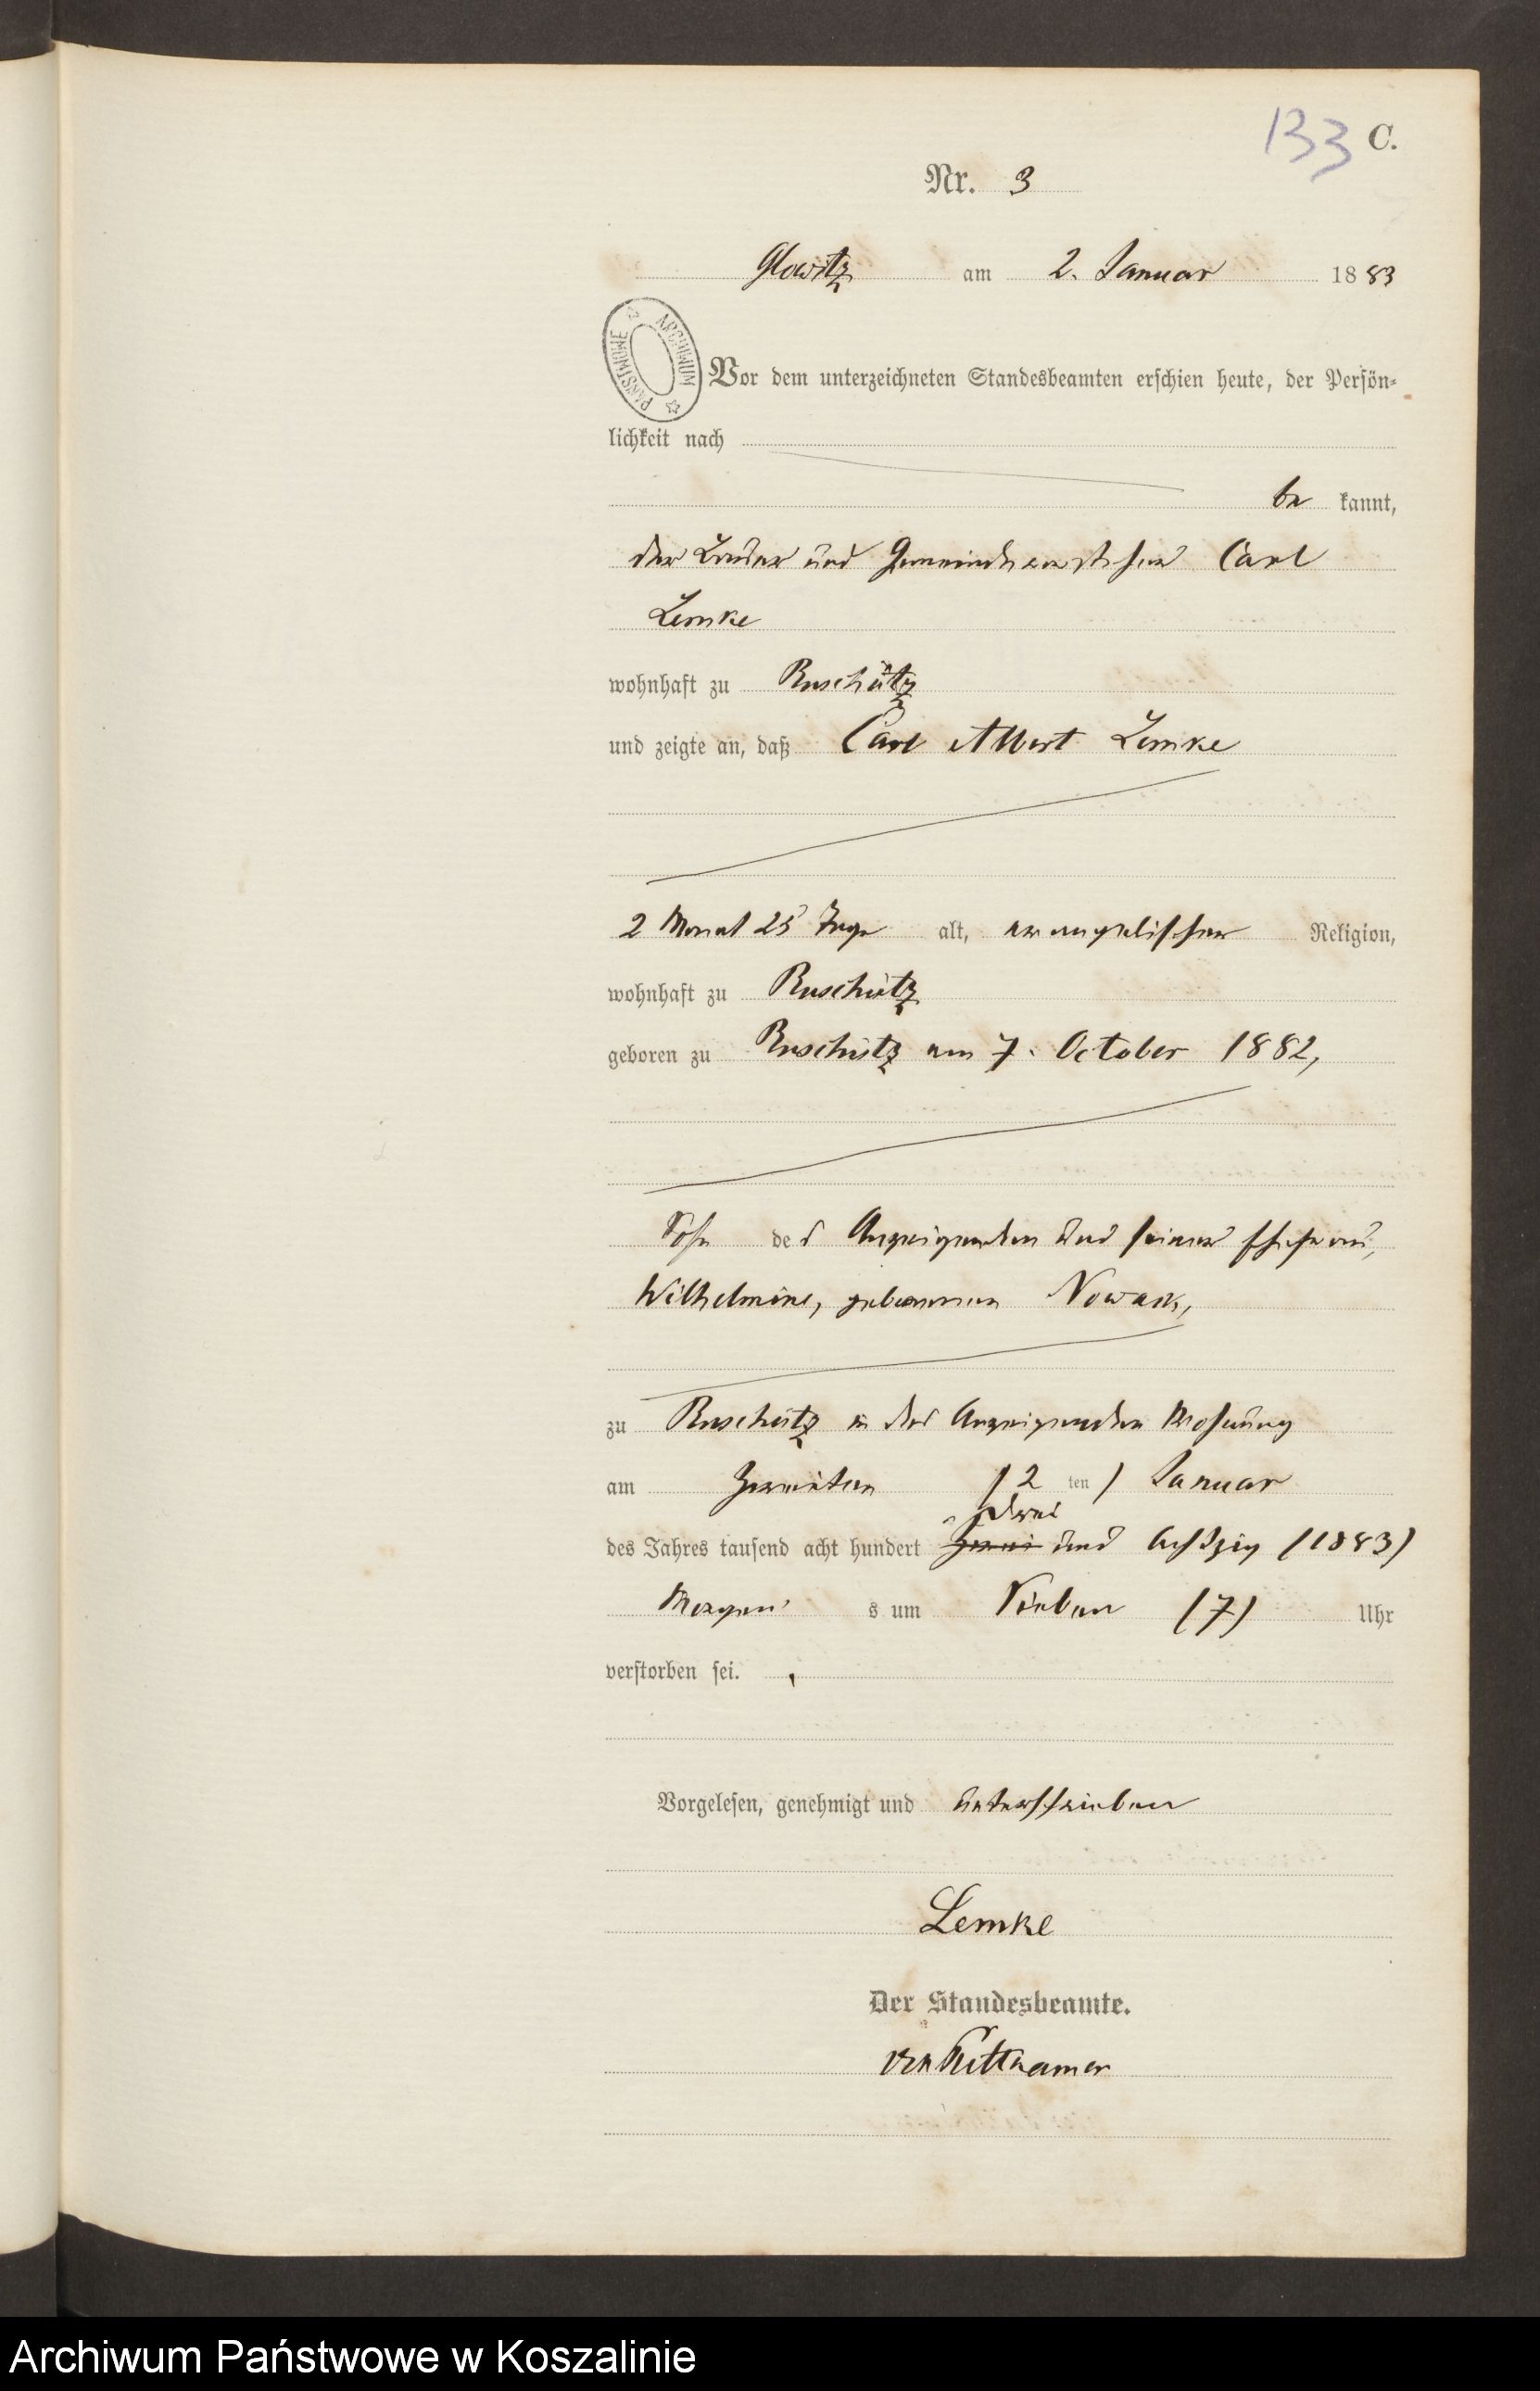 133 C.
Nr. 3
Glowitz am 2. Januar 1883
PAŃSTWOWE ARCHIWUM
Vor dem unterzeichneten Standesbeamten erschien heute, der Persön-
lichkeit nach
be kannt,
der und Gemeindevorsteher Carl
Lemke
wohnhaft zu Ruschütz
und zeigte an, daß Carl Albert Lemke
2 Monat 25 Tage alt, evangelischer Religion,
wohnhaft zu Ruschütz
geboren zu Ruschütz am 7. October 1882,
Sohn des Anzeigenden und seiner Ehefrau,
Wilhelmine, geborenen Nowack,
zu Ruschütz in des Anzeigenden Wohnung
am Zweiten (2 ten) Januar
drei
des Jahres tausend acht hundert zwei und Achtzig (1883)
Morgens um Sieben (7) Uhr
verstorben sei.
Vorgelesen, genehmigt und unterschrieben
Lemke
Der Standesbeamte.
von Puttkamer
Archiwum Państwowe w Koszalinie